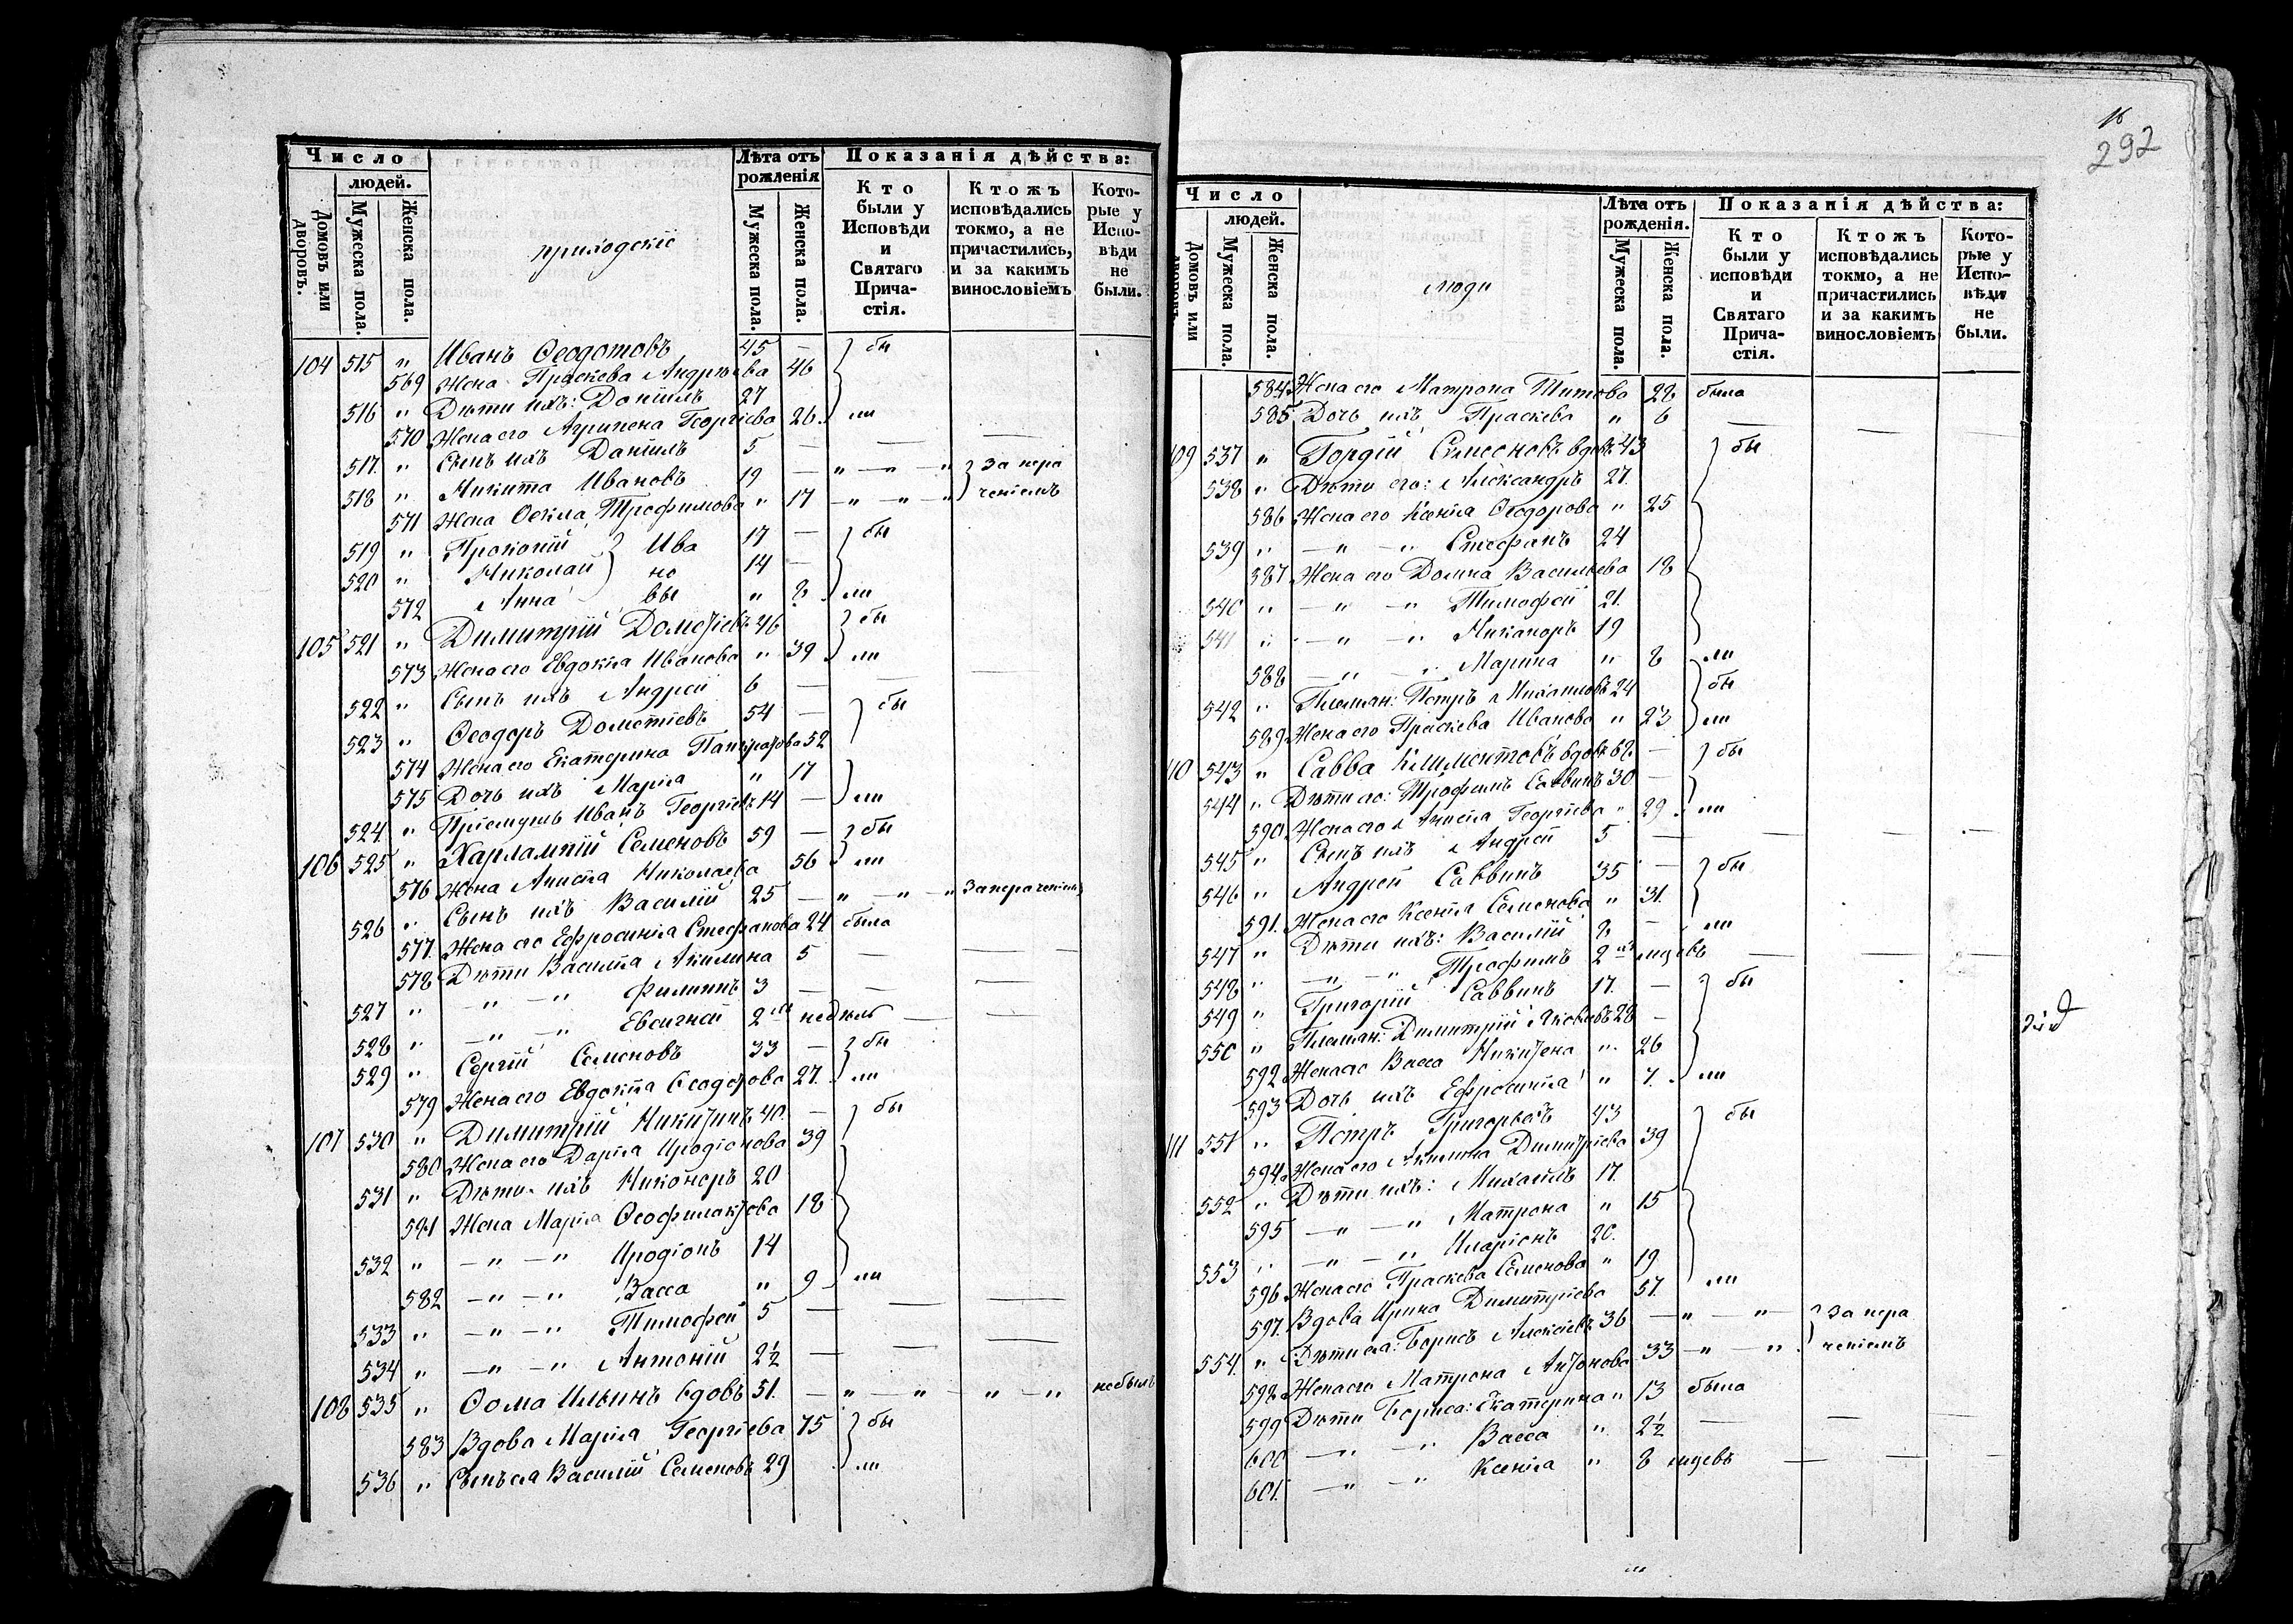 Число
людей.
Домовъ или дворовъ.
Мужеска пола.
Женска пола.
приходскіе
Лѣта отъ рожленія
Мужеска пола.
Женска пола.
Показанія дѣйства:
Кто были у Исповѣди и Святаго Прича-стія.
Ктожъ исповѣдались токмо, а не причастились, и за какимъ винословіемъ
Кото-рые у Испо-вѣди не были.
104 515 " Иванъ Ѳеодотовъ 45 — бы
569 Жена Праскева Андреева 46
516 " Дѣти ихъ: Даніилъ 27
570 Жена его Агрипена Георгіева 26 ли
517. " Сынъ ихъ Даніилъ 5 — — —
518 " Никита Ивановъ 19 — " — " — " За нера
571 Жена Ѳекла Трофимова " 17 — " — " — " ченіемъ
519 " Прокопій Ива 17 — бы
520 " Николай но 14 —
572 Анна вы " 8 ли
105 521 " Димитрій Дометіевъ 46 бы
573 Жена его Евдокія Иванова " 39 ли
522 " Сынъ ихъ Андрей 6 — — —
523 " Ѳеодоръ Дометіевъ 54 — бы
574 Жена его Екатерина Панкратова 52
575 Дочь ихъ Марія " 17
524. " Пріемышъ Иванъ Георгіевъ 14 — ли
106 525 " Харлампій Семеновъ 59 — бы
576 Жена Анисія Николаева 56 ли
526 " Сынъ ихъ Василій 25 — " — " — " За нераченіемъ
577. Жена его Ефросинія Стефанова 24 была
578 Дѣти Василія Акилина 5 — — —
527 " — " — " Филиппъ 3 — — —
528 " — " — " Евсигней 2 недѣль — —
529 " Сергій Семеновъ 33 — бы
579 Жена его Евдокія Ѳеодорова 27. ли
107 530 " Димитрій Никитинъ 40. — бы
580 Жена его Дарія Иродіонова 39
531 " Дѣти ихъ Никоноръ 20
581 Жена Марія Ѳеофилактова 18
532 " — " — " Иродіонъ 14
582 — " — " Васса " 9 — ли
533 " — " — " Тимофей 5 — — —
534 " — " — " Антоній 2½ — — —
108 535 " Ѳома Ильинъ вдовъ 51. — " — " — " — " небылъ
583 Вдова Марія Георгіева 75 бы
536 " Сынъ ея Василій Семеновъ 29 ли
16
292
Число
людей.
Домовъ или дворовъ.
Мужеска пола.
Женска пола.
люди
Лѣта отъ рожденія.
Мужеска пола.
Женска пола.
Показанія дѣйства:
Кто были у исповѣди и Святаго Прича-стія.
Ктожъ исповѣдались токмо, а не причастились и за какимъ винословіемъ
Кото-рые у Испо-вѣди не были.
584 Жена его Матрона Титова 28 была
585 Дочь ихъ Праскева " 6 — — —
109 537 " Гордій Симеоновъ вдовъ 43 бы
538 " Дѣти его: Александръ 27.
586 Жена его Ксенія Ѳеодорова " 25
539 " — " — " Стефанъ 24
587 Жена его Домна Васильева 18
540 " — " — " Тимофей 21.
541 " — " — " Никаноръ 19
588 — " — " Марина " 8 ли
542 " Племян: Петръ Михаиловъ 24 бы
589 Жена его Праскева Иванова " 23 ли
110 543 " Савва Климентовъ вдовъ 68. — бы
544 " Дѣти его: Трофимъ Саввинъ 30 —
590 Жена его Анисія Георгіева " 29. ли
545 " Сынъ ихъ Андрей 5 — — — —
546 " Андрей Саввинъ 35 — бы
591. Жена его Ксенія Семенова " 31.
547 " Дѣти ихъ: Василій 8 — ли
548 " — " — " Трофимъ 2 мцовъ — — —
549 " Григорій Саввинъ 17. — бы
550 " Племян: Димитрій Яковлевъ 28 —
592 Жена его Васса Никитина " 26
593 Дочь ихъ Ефросинія " 7. ли
111 551 " Петръ Григорьевъ 43 бы
594. Жена его Акилина Димитріева 39
552 " Дѣти ихъ: Михаилъ 17.
595 — " — " Матрона " 15
553 " — " — " Иларіонъ 20.
596 Жена его Праскева Семенова " 19
597. Вдова Ирина Димитріева 57. ли
554. " Дѣти ея: Борисъ Алексіевъ 36 — " — " За нера
598 Жена его Матрона Антонова 33 — " — " ченіемъ
599 Дѣти Бориса: Екатерина " 13 была
600 — " — " Васса " 2½ — — —
601. — " — " Ксенія " 8 мцевъ — — —